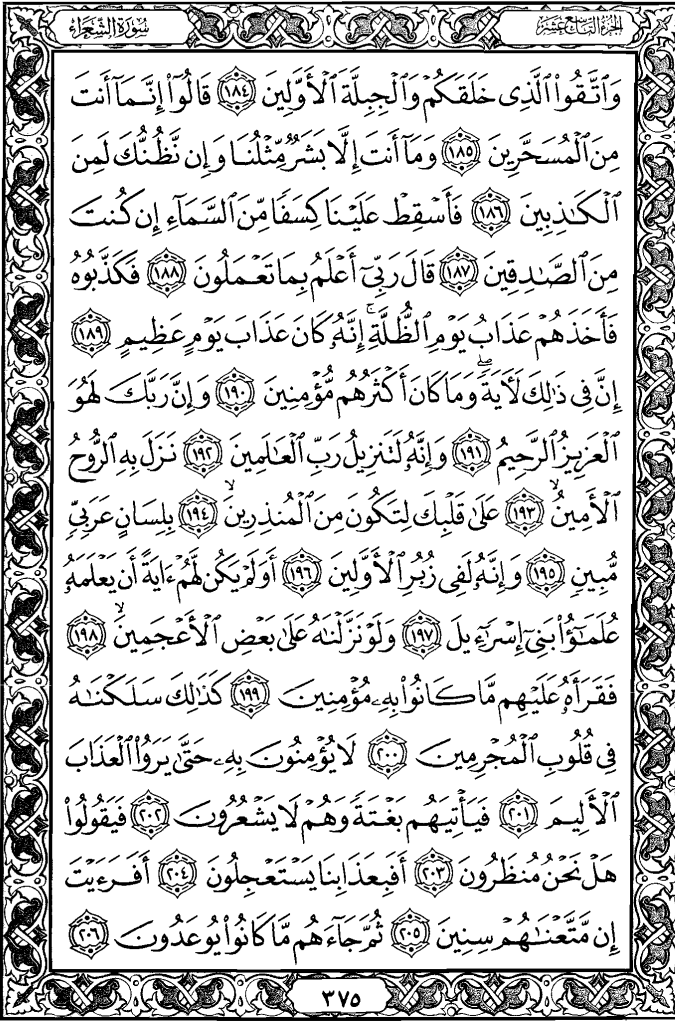 الجزء التاسع عشر
سورة الشعراء
وَٱتَّقُوا۟ ٱلَّذِى خَلَقَكُمْ وَٱلْجِبِلَّةَ ٱلْأَوَّلِينَ ١٨٤ قَالُوٓا۟ إِنَّمَآ أَنتَ
مِنَ ٱلْمُسَحَّرِينَ ١٨٥ وَمَآ أَنتَ إِلَّا بَشَرٌ مِّثْلُنَا وَإِن نَّظُنُّكَ لَمِنَ
ٱلْكَـٰذِبِينَ ١٨٦ فَأَسْقِطْ عَلَيْنَا كِسَفًا مِّنَ ٱلسَّمَآءِ إِن كُنتَ
مِنَ ٱلصَّـٰدِقِينَ ١٨٧ قَالَ رَبِّىٓ أَعْلَمُ بِمَا تَعْمَلُونَ ١٨٨ فَكَذَّبُوهُ
فَأَخَذَهُمْ عَذَابُ يَوْمِ ٱلظُّلَّةِ ۚ إِنَّهُۥ كَانَ عَذَابَ يَوْمٍ عَظِيمٍ ١٨٩
إِنَّ فِى ذَٰلِكَ لَـَٔايَةً ۖ وَمَا كَانَ أَكْثَرُهُم مُّؤْمِنِينَ ١٩٠ وَإِنَّ رَبَّكَ لَهُوَ
ٱلْعَزِيزُ ٱلرَّحِيمُ ١٩١ وَإِنَّهُۥ لَتَنزِيلُ رَبِّ ٱلْعَـٰلَمِينَ ١٩٢ نَزَلَ بِهِ ٱلرُّوحُ
ٱلْأَمِينُ ۙ ١٩٣ عَلَىٰ قَلْبِكَ لِتَكُونَ مِنَ ٱلْمُنذِرِينَ ۙ ١٩٤ بِلِسَانٍ عَرَبِىٍّ
مُّبِينٍ ١٩٥ وَإِنَّهُۥ لَفِى زُبُرِ ٱلْأَوَّلِينَ ١٩٦ أَوَلَمْ يَكُن لَّهُمْ ءَايَةً أَن يَعْلَمَهُۥ
عُلَمَـٰٓؤُا۟ بَنِىٓ إِسْرَٰٓءِيلَ ١٩٧ وَلَوْ نَزَّلْنَـٰهُ عَلَىٰ بَعْضِ ٱلْأَعْجَمِينَ ۙ ١٩٨
فَقَرَأَهُۥ عَلَيْهِم مَّا كَانُوا۟ بِهِۦ مُؤْمِنِينَ ١٩٩ كَذَٰلِكَ سَلَكْنَـٰهُ
فِى قُلُوبِ ٱلْمُجْرِمِينَ ٢٠٠ لَا يُؤْمِنُونَ بِهِۦ حَتَّىٰ يَرَوُا۟ ٱلْعَذَابَ
ٱلْأَلِيمَ ٢٠١ فَيَأْتِيَهُم بَغْتَةً وَهُمْ لَا يَشْعُرُونَ ٢٠٢ فَيَقُولُوا۟
هَلْ نَحْنُ مُنظَرُونَ ٢٠٣ أَفَبِعَذَابِنَا يَسْتَعْجِلُونَ ٢٠٤ أَفَرَءَيْتَ
إِن مَّتَّعْنَـٰهُمْ سِنِينَ ٢٠٥ ثُمَّ جَآءَهُم مَّا كَانُوا۟ يُوعَدُونَ ٢٠٦
٣٧٥